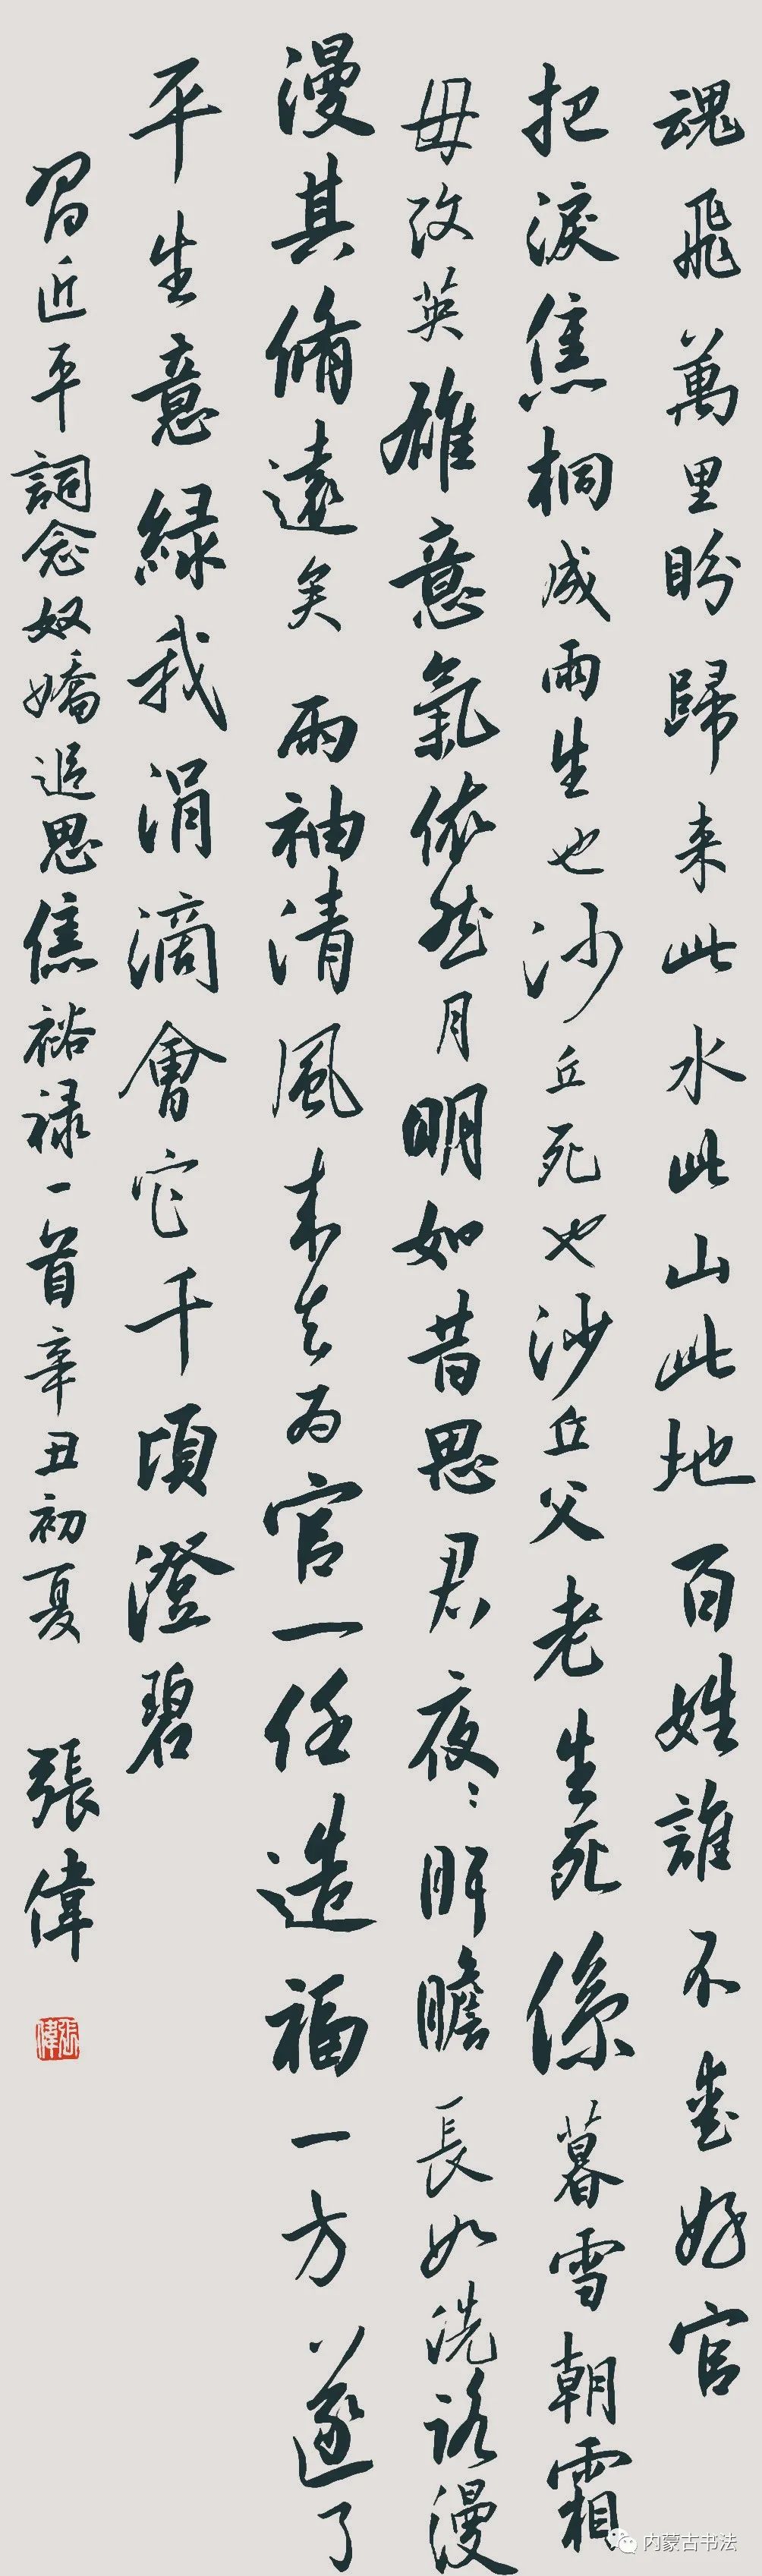 魂飛萬里盼歸来此水此山此地百姓誰不愛好官
把淚焦桐成雨生也沙丘死也沙丘父老生死係暮雪朝霜
毋改英雄意氣依然月明如昔思君夜〻肝膽長如洗路漫
漫其脩遠矣兩袖清風来去为官一任造福一方遂了
平生意綠我涓滴會它千頃澄碧
習近平詞念奴嬌追思焦裕禄一首辛丑初夏 張偉
張偉
内蒙古书法